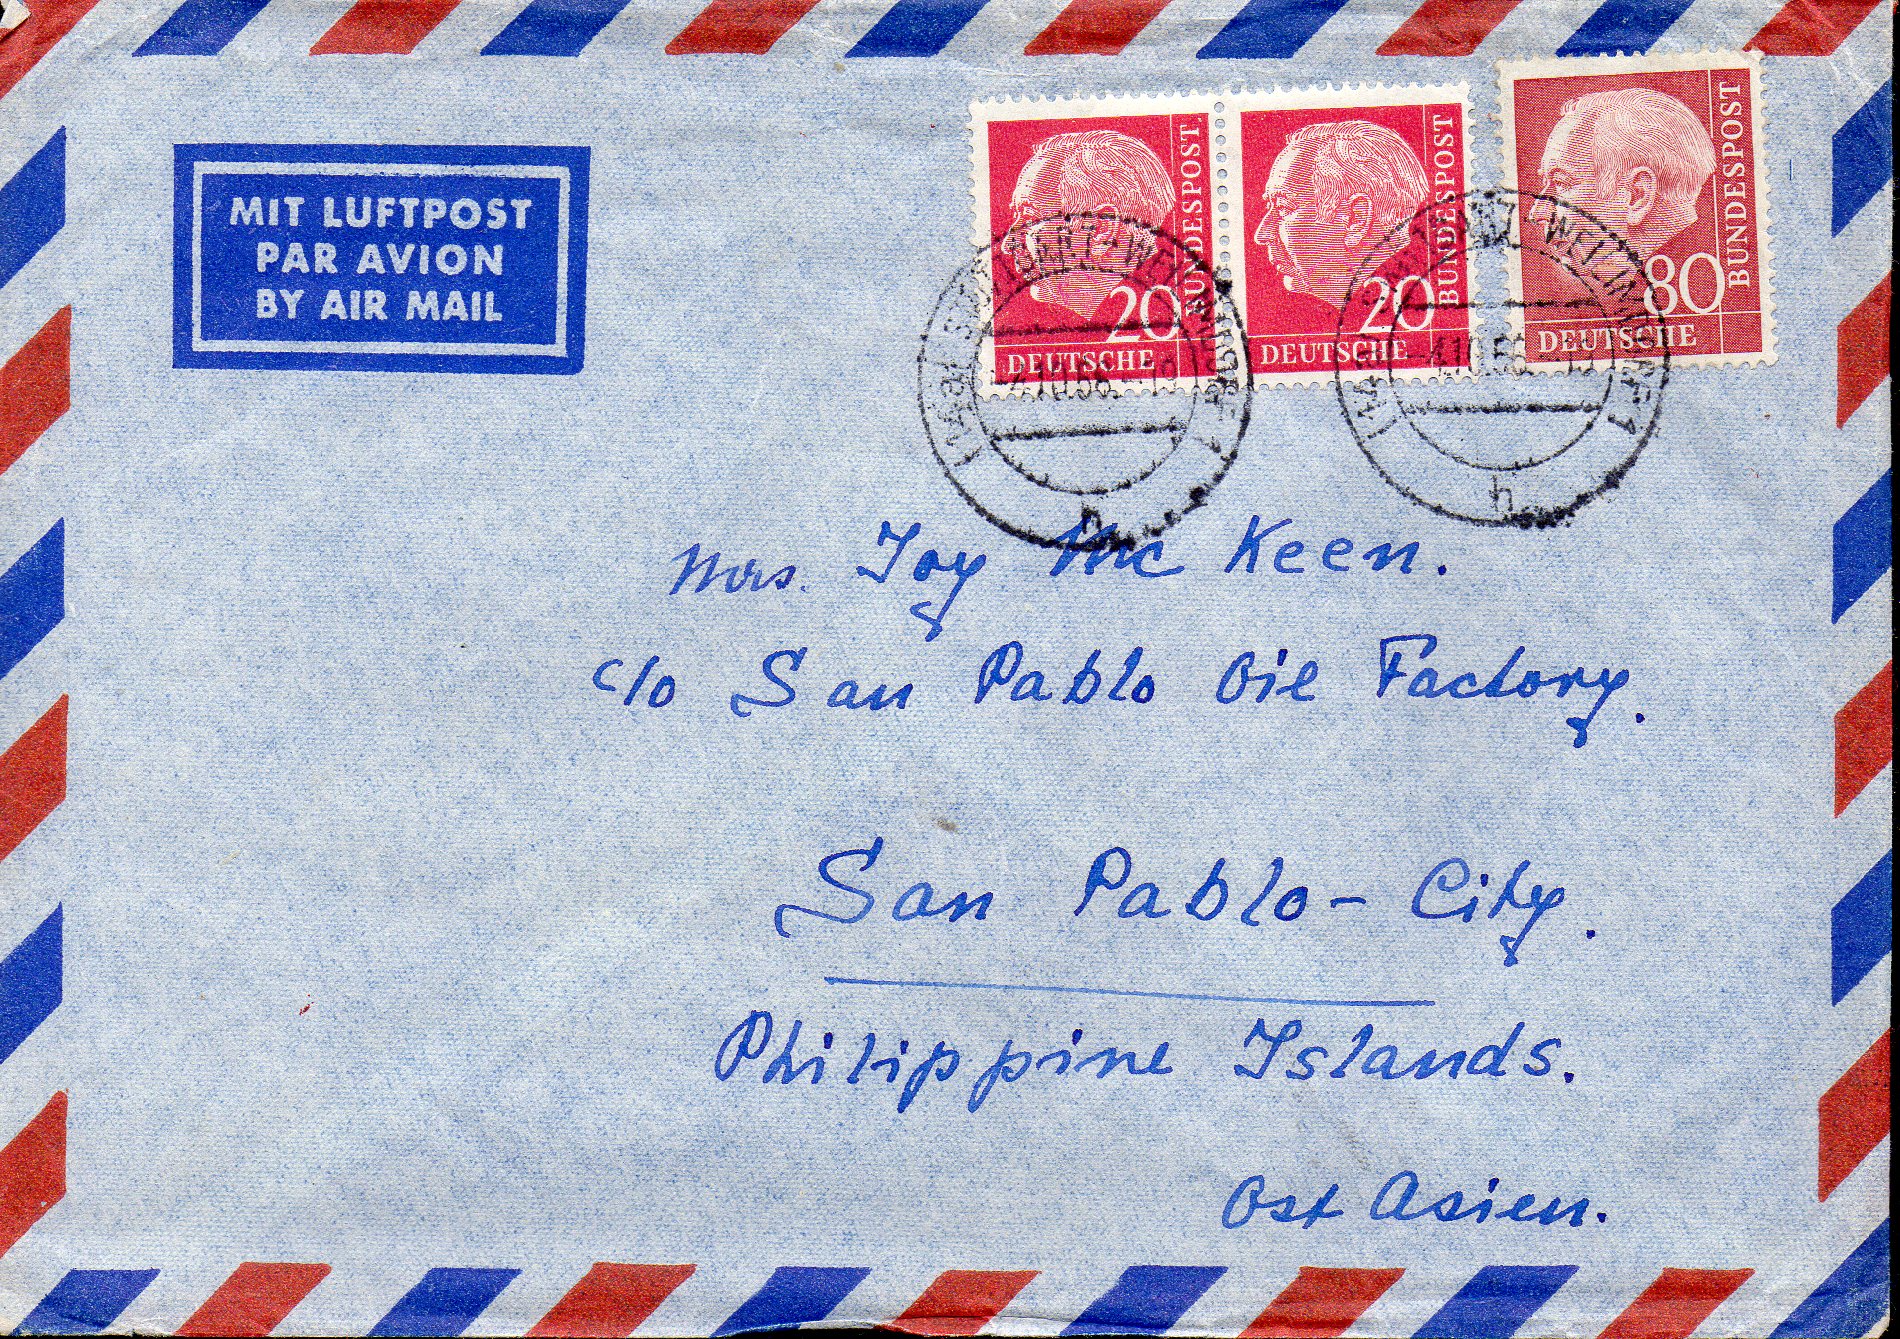 MIT LUFTPOST
PAR AVION
BY AIR MAIL
20
DEUTSCHE
BUNDESPOST
20
DEUTSCHE
BUNDESPOST
80
DEUTSCHE
BUNDESPOST
-4.10.56.-19
h
-4.10.56.-19
h
Mrs. Joy Mc Keen.
c/o San Pablo Oil Factory.
San Pablo-City.
Philippine Islands.
Ost Asien.